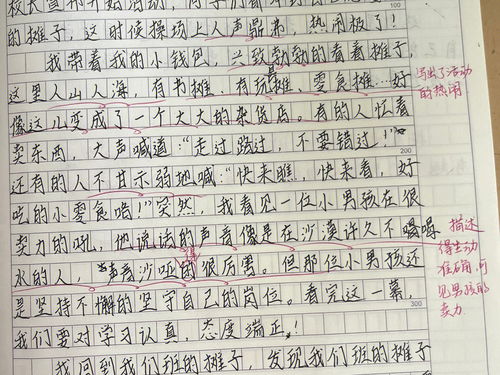 校长宣布开始活动，
的摊子，这时候操场上人声鼎沸，热闹极了！
100
我带着我的小钱包，兴致勃勃的看着摊子，
这里人山人海，有书摊、有玩摊、零食摊…好
写出了活动
的热闹
200
像这儿变成了一个大大的杂货店。有的人忙着
卖东西，大声喊道：“走过路过，不要错过！”
还有的人不甘示弱地喊：“快来瞧，快来看，好
吃的小零食啦！”突然，我看见一位小男孩在很
卖力的吼，他说话的声音像是在沙漠许久不喝
描述
水的人，声音沙哑的很厉害。但那位小男孩还
得
得生动
准确，可
见男孩的
卖力
是坚持不懈的坚守自己的岗位。看完这一幕，
300
我们要对学习认真，态度端正！
我回到我们班的摊子，发现我们班的摊子